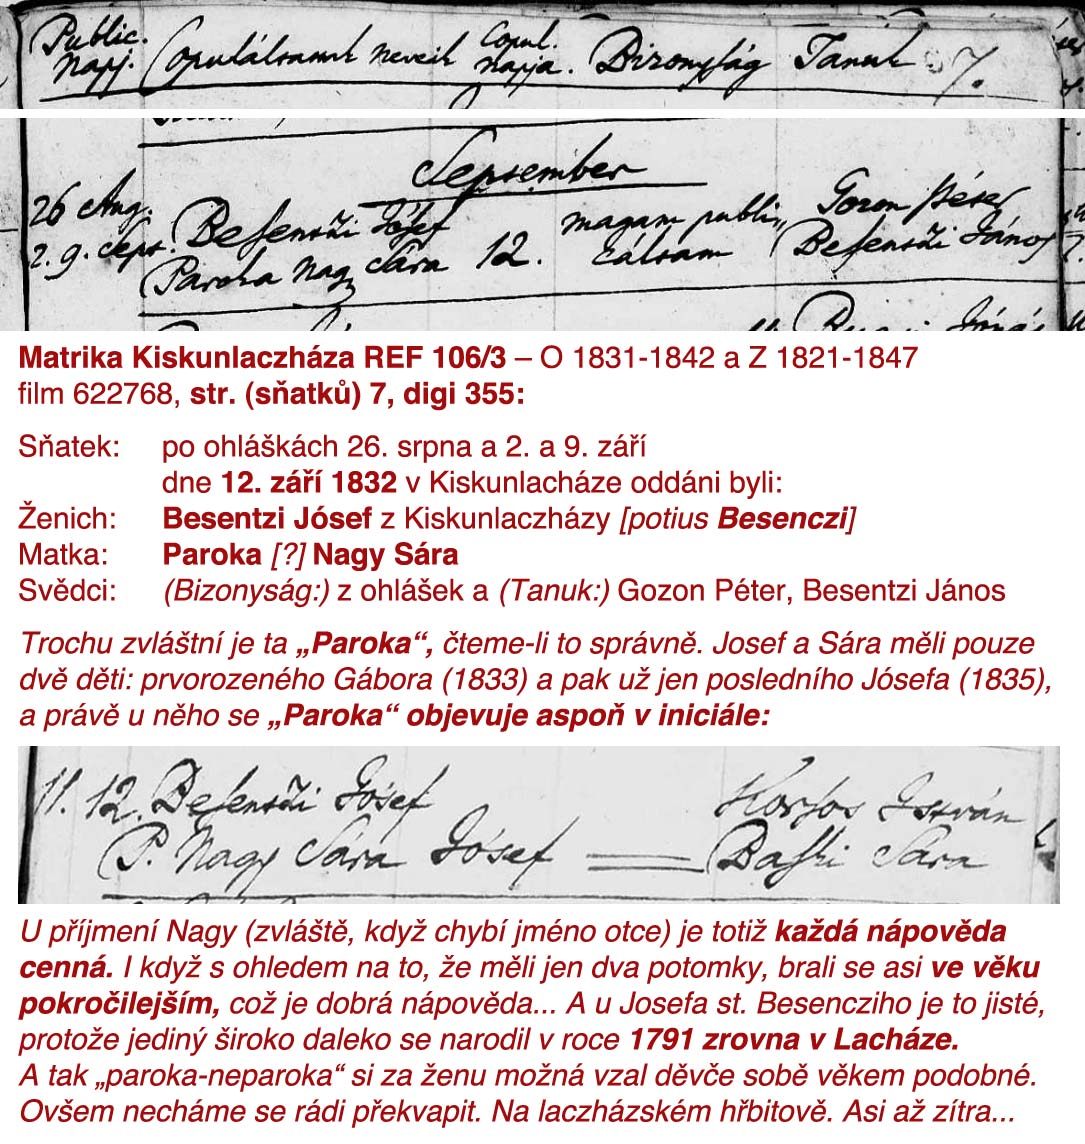 Public. Copuláltamk neveik Copul. Bizonyság Tanuk 7.
Napj. napja.
September
26 Aug. Besentzi Jósef magam publi„ Gozon Péter
2. 9. Sept. Paroka Nagy Sára 12. cáltam Besentzi János
Matrika Kiskunlaczháza REF 106/3 – O 1831-1842 a Z 1821-1847
film 622768, str. (sňatků) 7, digi 355:
Sňatek: po ohláškách 26. srpna a 2. a 9. září
dne 12. září 1832 v Kiskunlacháze oddáni byli:
Ženich: Besentzi Jósef z Kiskunlaczházy [potius Besenczi]
Matka: Paroka [?] Nagy Sára
Svědci: (Bizonyság:) z ohlášek a (Tanuk:) Gozon Péter, Besentzi János
Trochu zvláštní je ta „Paroka“, čteme-li to správně. Josef a Sára měli pouze
dvě děti: prvorozeného Gábora (1833) a pak už jen posledního Jósefa (1835),
a právě u něho se „Paroka“ objevuje aspoň v iniciále:
11. 12. Besentzi Jósef István
P. Nagy Sára Jósef Sára
U příjmení Nagy (zvláště, když chybí jméno otce) je totiž každá nápověda
cenná. I když s ohledem na to, že měli jen dva potomky, brali se asi ve věku
pokročilejším, což je dobrá nápověda... A u Josefa st. Besencziho je to jisté,
protože jediný široko daleko se narodil v roce 1791 zrovna v Lacháze.
A tak „paroka-neparoka“ si za ženu možná vzal děvče sobě věkem podobné.
Ovšem necháme se rádi překvapit. Na laczházském hřbitově. Asi až zítra...